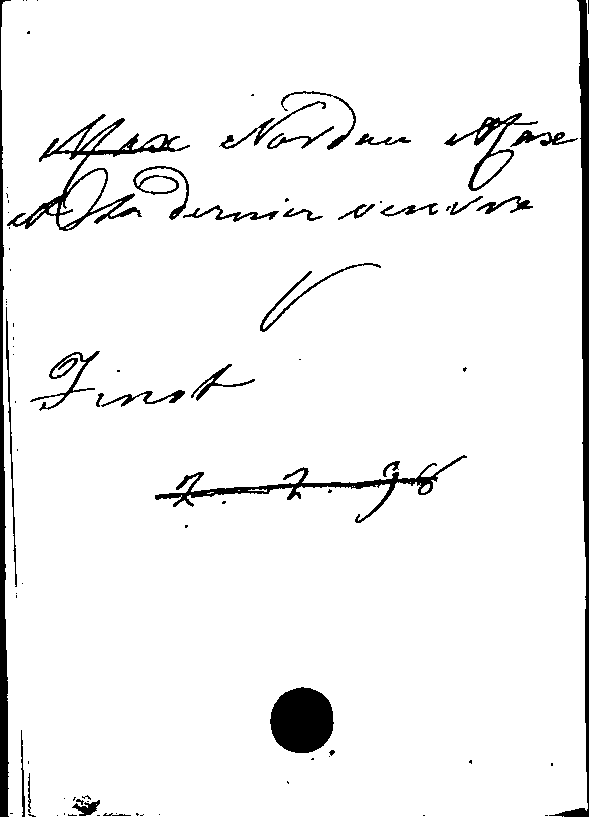 Max Nordau Max
et sa dernier oeuvre
V
Finot
2. 2. 98